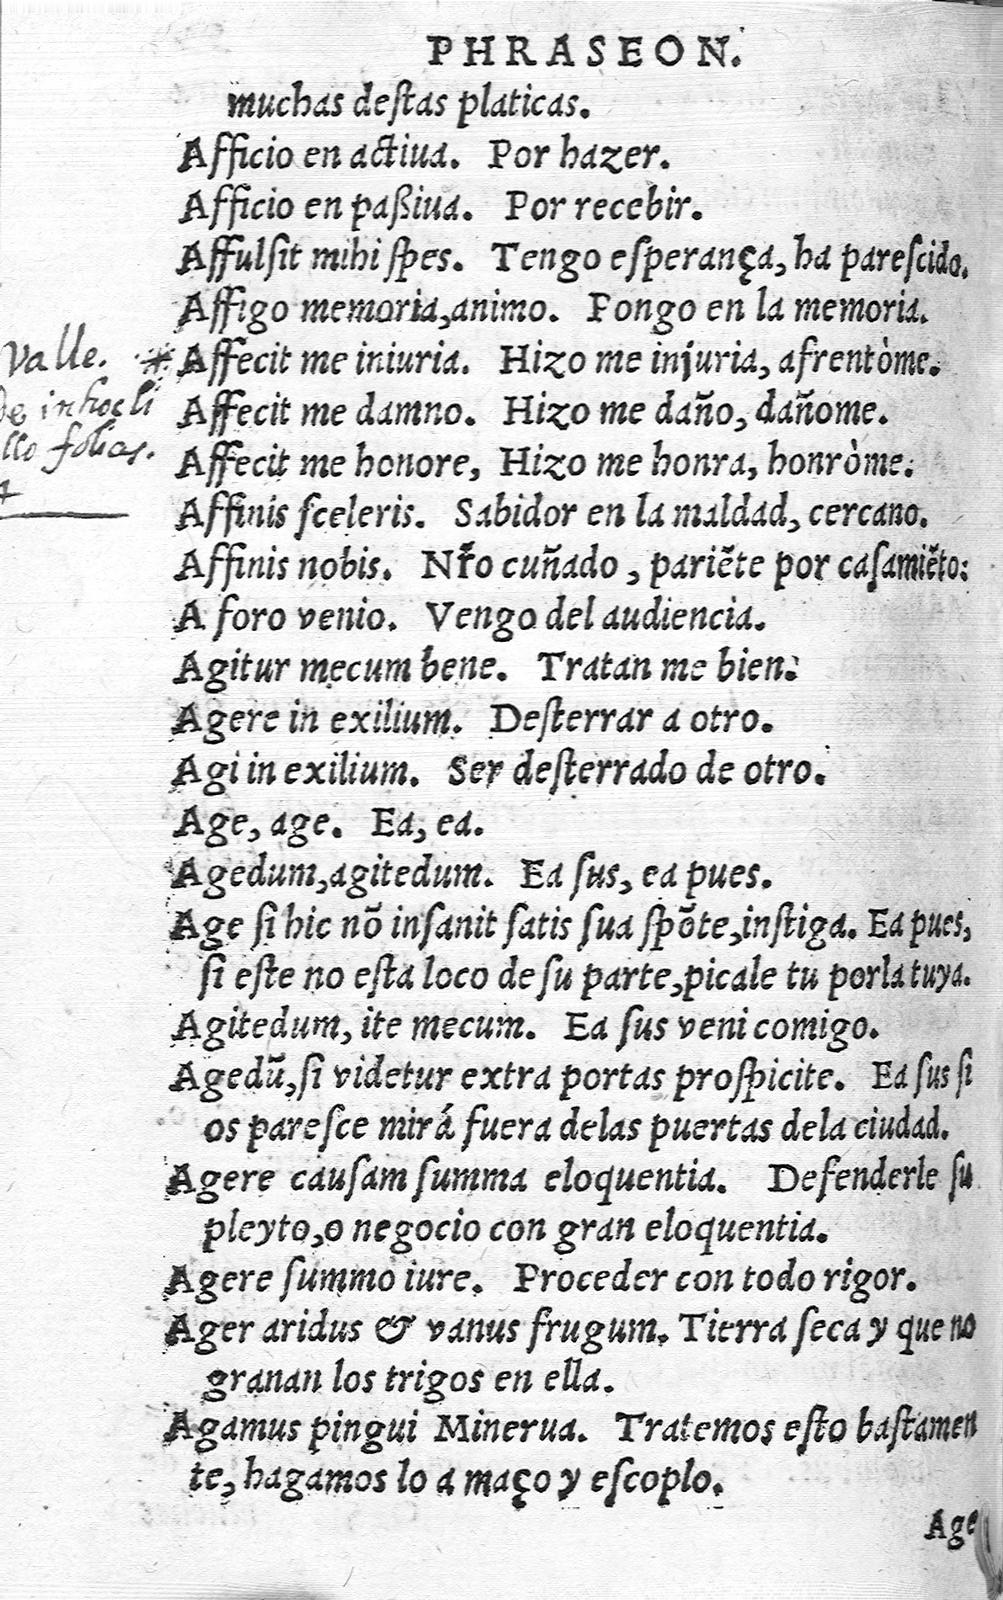 PHRASEON.
muchas deſtas platicas.
Afficio en actiua. Por hazer.
Afficio en paßiua. Por recebir.
Affulſit mihi ſpes. Tengo eſperança, ha pareſcido.
Affigo memoria, animo. Pongo en la memoria.
Valle. * Affecit me iniuria. Hizo me injuria, afrentòme.
Affecit me damno. Hizo me daño, dañome.
folias. Affecit me honore, Hizo me honra, honròme.
Affinis ſceleris. Sabidor en la maldad, cercano.
Affinis nobis. Nr̃o cuñado, pariẽte por caſamiẽto:
A foro venio. Vengo del audiencia.
Agitur mecum bene. Tratan me bien.
Agere in exilium. Deſterrar a otro.
Agi in exilium. Ser deſterrado de otro.
Age, age. Ea, ea.
Agedum, agitedum. Ea ſus, ea pues.
Age ſi hic nõ inſanit ſatis ſua ſpõte, inſtiga. Ea pues,
ſi eſte no eſta loco de ſu parte, picale tu por la tuya.
Agitedum, ite mecum. Ea ſus veni comigo.
Agedũ, ſi videtur extra portas proſpicite. Ea ſus ſi
os pareſce mirá fuera delas puertas dela ciudad.
Agere cauſam ſumma eloquentia. Defenderle ſu
pleyto, o negocio con gran eloquentia.
Agere ſummo iure. Proceder con todo rigor.
Ager aridus & vanus frugum. Tierra ſeca y que no
granan los trigos en ella.
Agamus pingui Minerua. Tratemos eſto baſtamen
te, hagamos lo a maço y eſcoplo.
Age